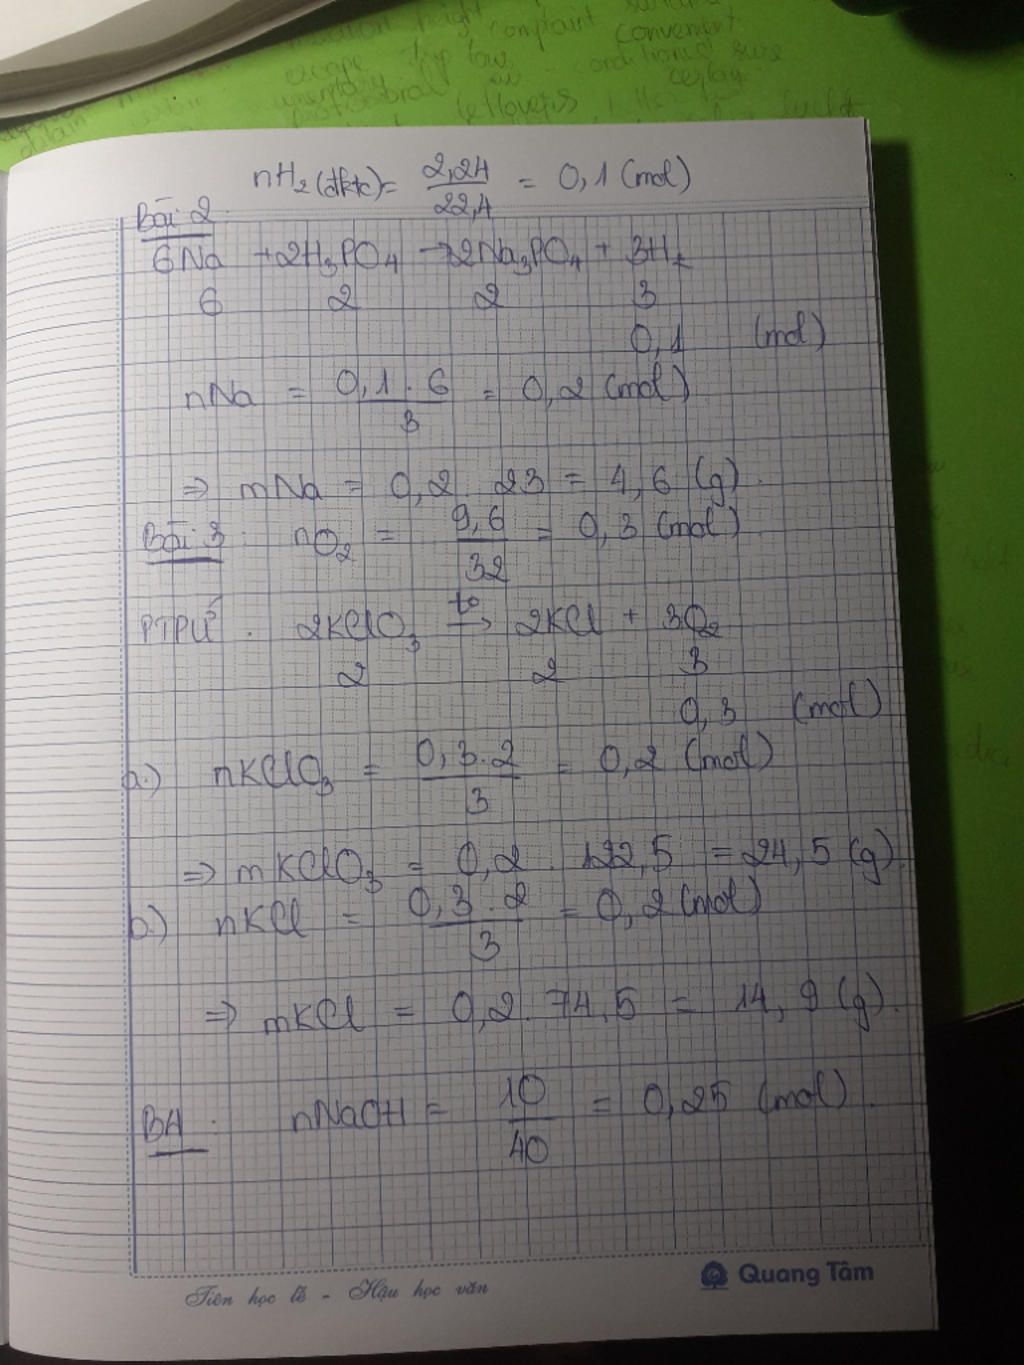 complaint convenient
escape
leftovers
nH₂(đktc) = 2,24/22,4 = 0,1 (mol)
Bài 2
6Na + 2H₃PO₄ → 2Na₃PO₄ + 3H₂
6 2 2 3
0,1 (mol)
nNa = 0,1 . 6/3 = 0,2 (mol)
⇒ mNa = 0,2 . 23 = 4,6 (g).
Bài 3 : nO₂ = 9,6/32 = 0,3 (mol)
PTPƯ : 2KClO₃ t° → 2KCl + 3O₂
2 2 3
0,3 (mol)
a.) nKClO₃ = 0,3 . 2/3 = 0,2 (mol)
⇒ mKClO₃ = 0,2 . 122,5 = 24,5 (g).
b.) nKCl = 0,3 . 2/3 = 0,2 (mol)
⇒ mKCl = 0,2 . 74,5 = 14,9 (g).
B4 : nNaOH = 10/40 = 0,25 (mol).
Tiên học lễ - Hậu học văn
Quang Tâm